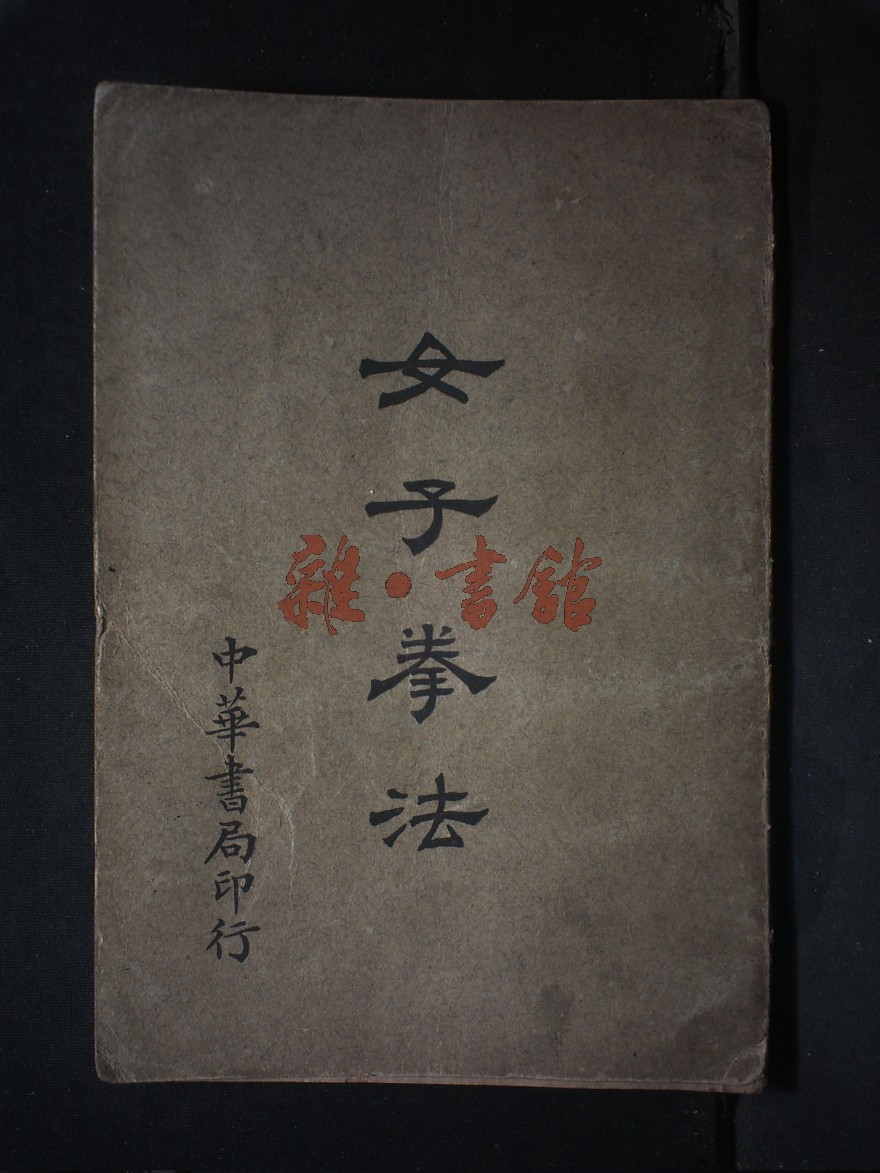 女子拳法
中華書局印行
雜·書館